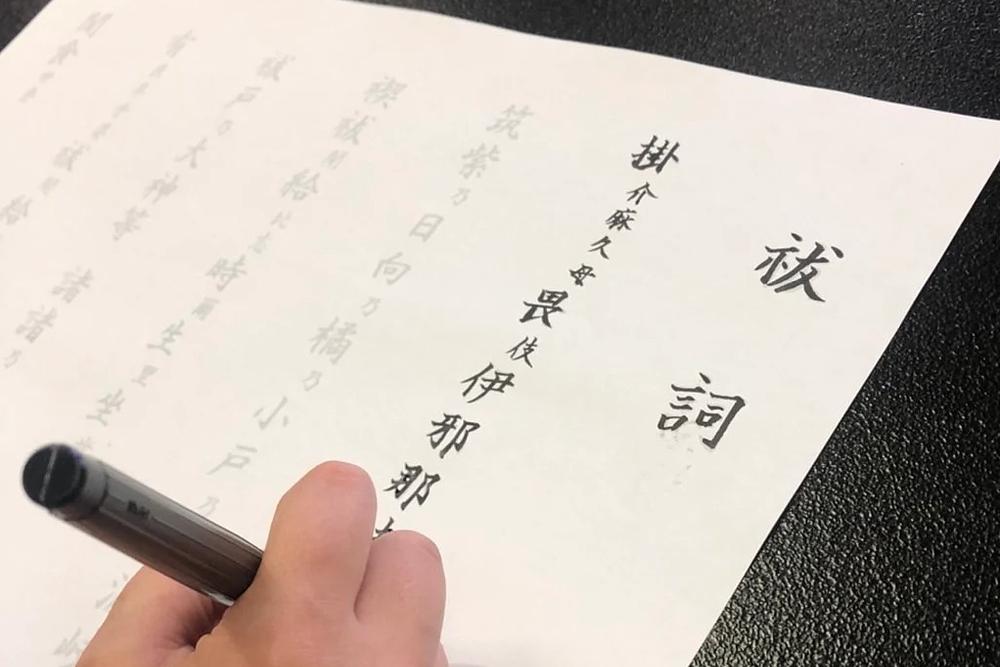 祓詞
掛介麻久母畏伎伊邪那
筑紫乃日向乃橘乃小戸乃波岐
禊祓閉給比志時爾生里坐世
祓戸乃大神等諸諸乃
有良牟乎婆祓閉給
聞食世登